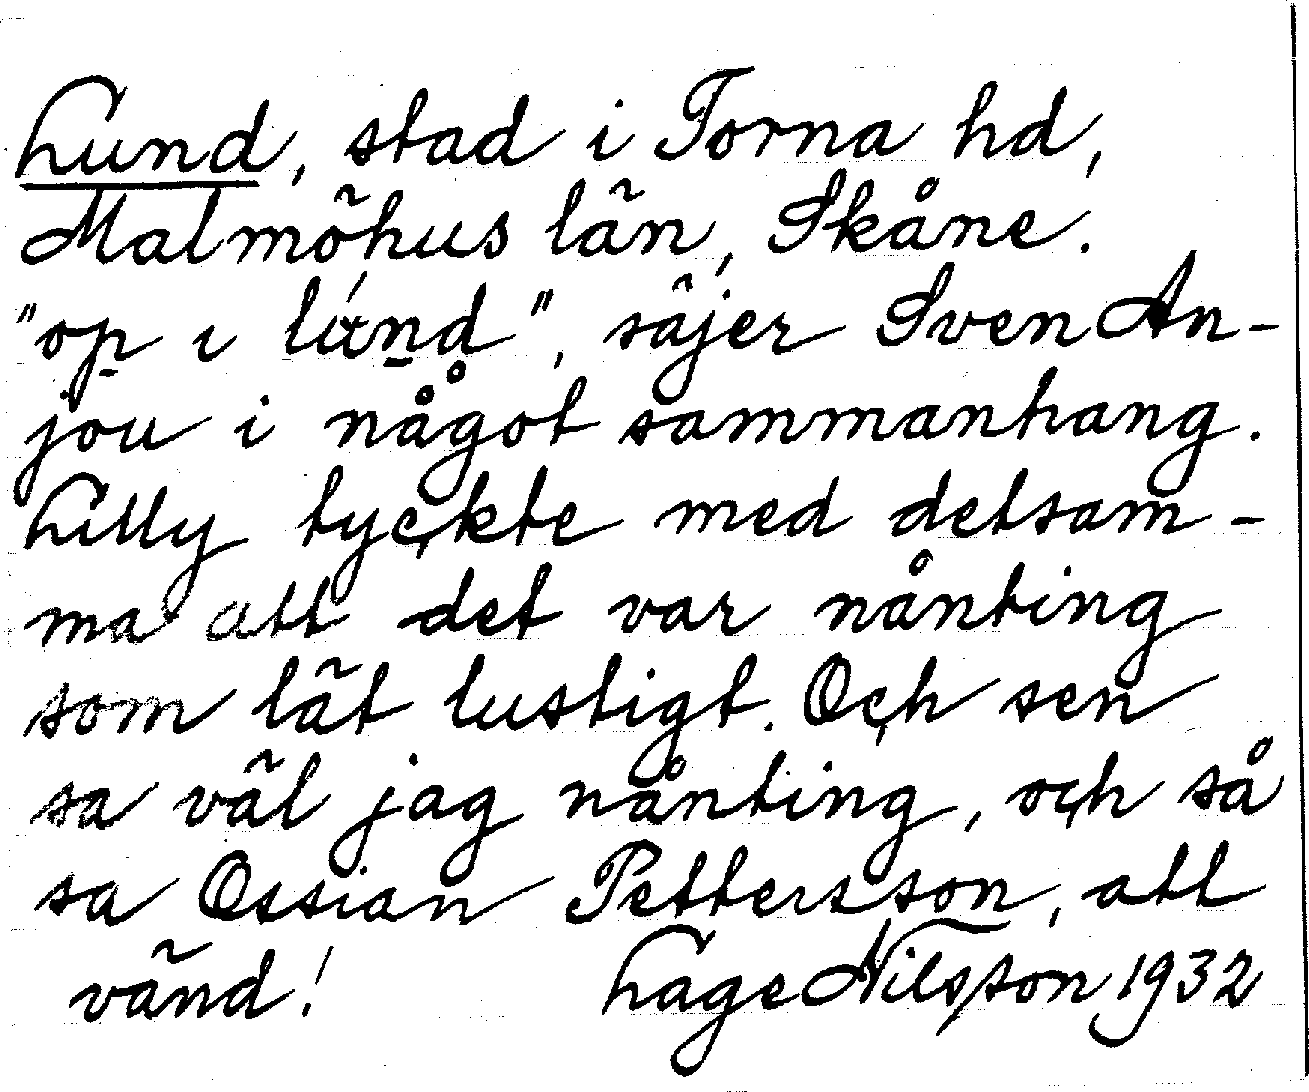 Lund, stad i Torna hd,
Malmöhus län, Skåne.
"op i lund", säjer Sven An-
jou i något sammanhang.
Lilly tyckte med detsam-
ma att det var nånting
som lät lustigt. Och sen
sa väl jag nånting, och så
sa Ossian Pettersson, att
vänd! Hage Nilsson 1932